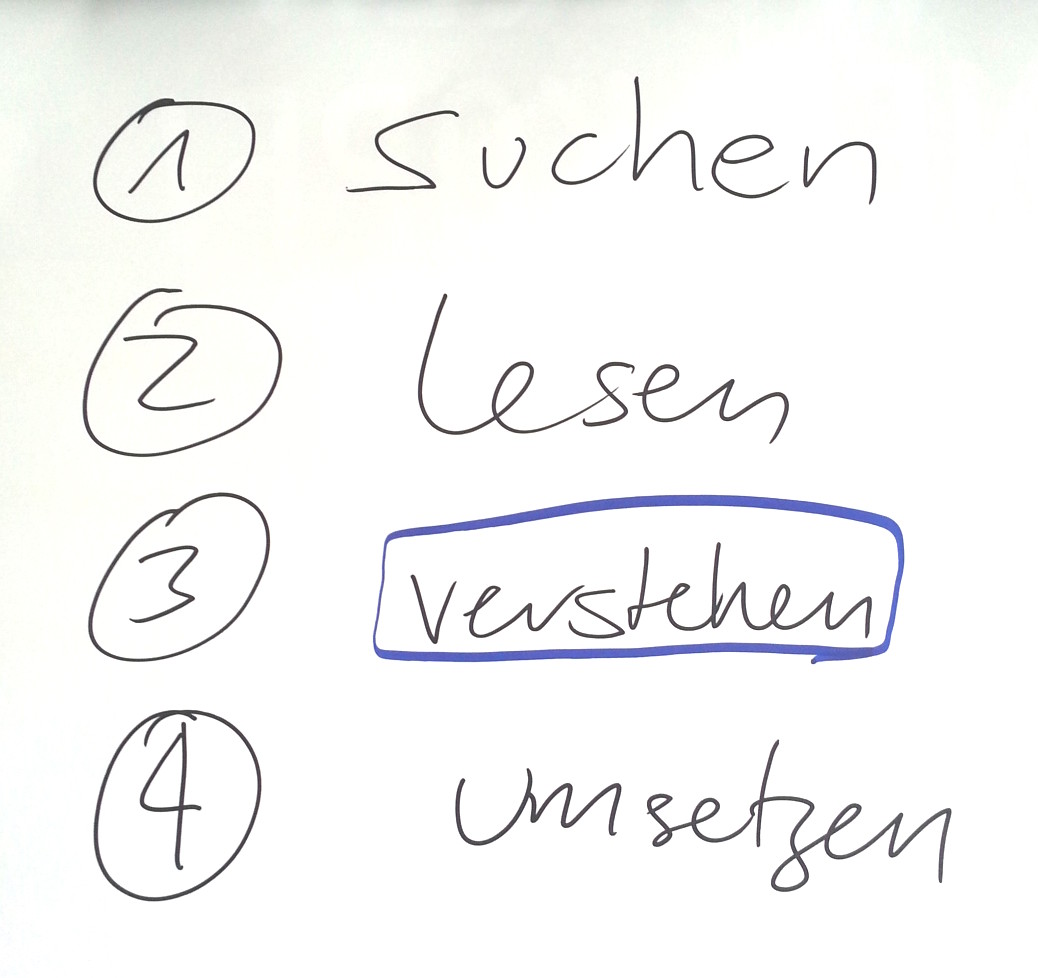 1 Suchen
2 lesen
3 verstehen
4 umsetzen